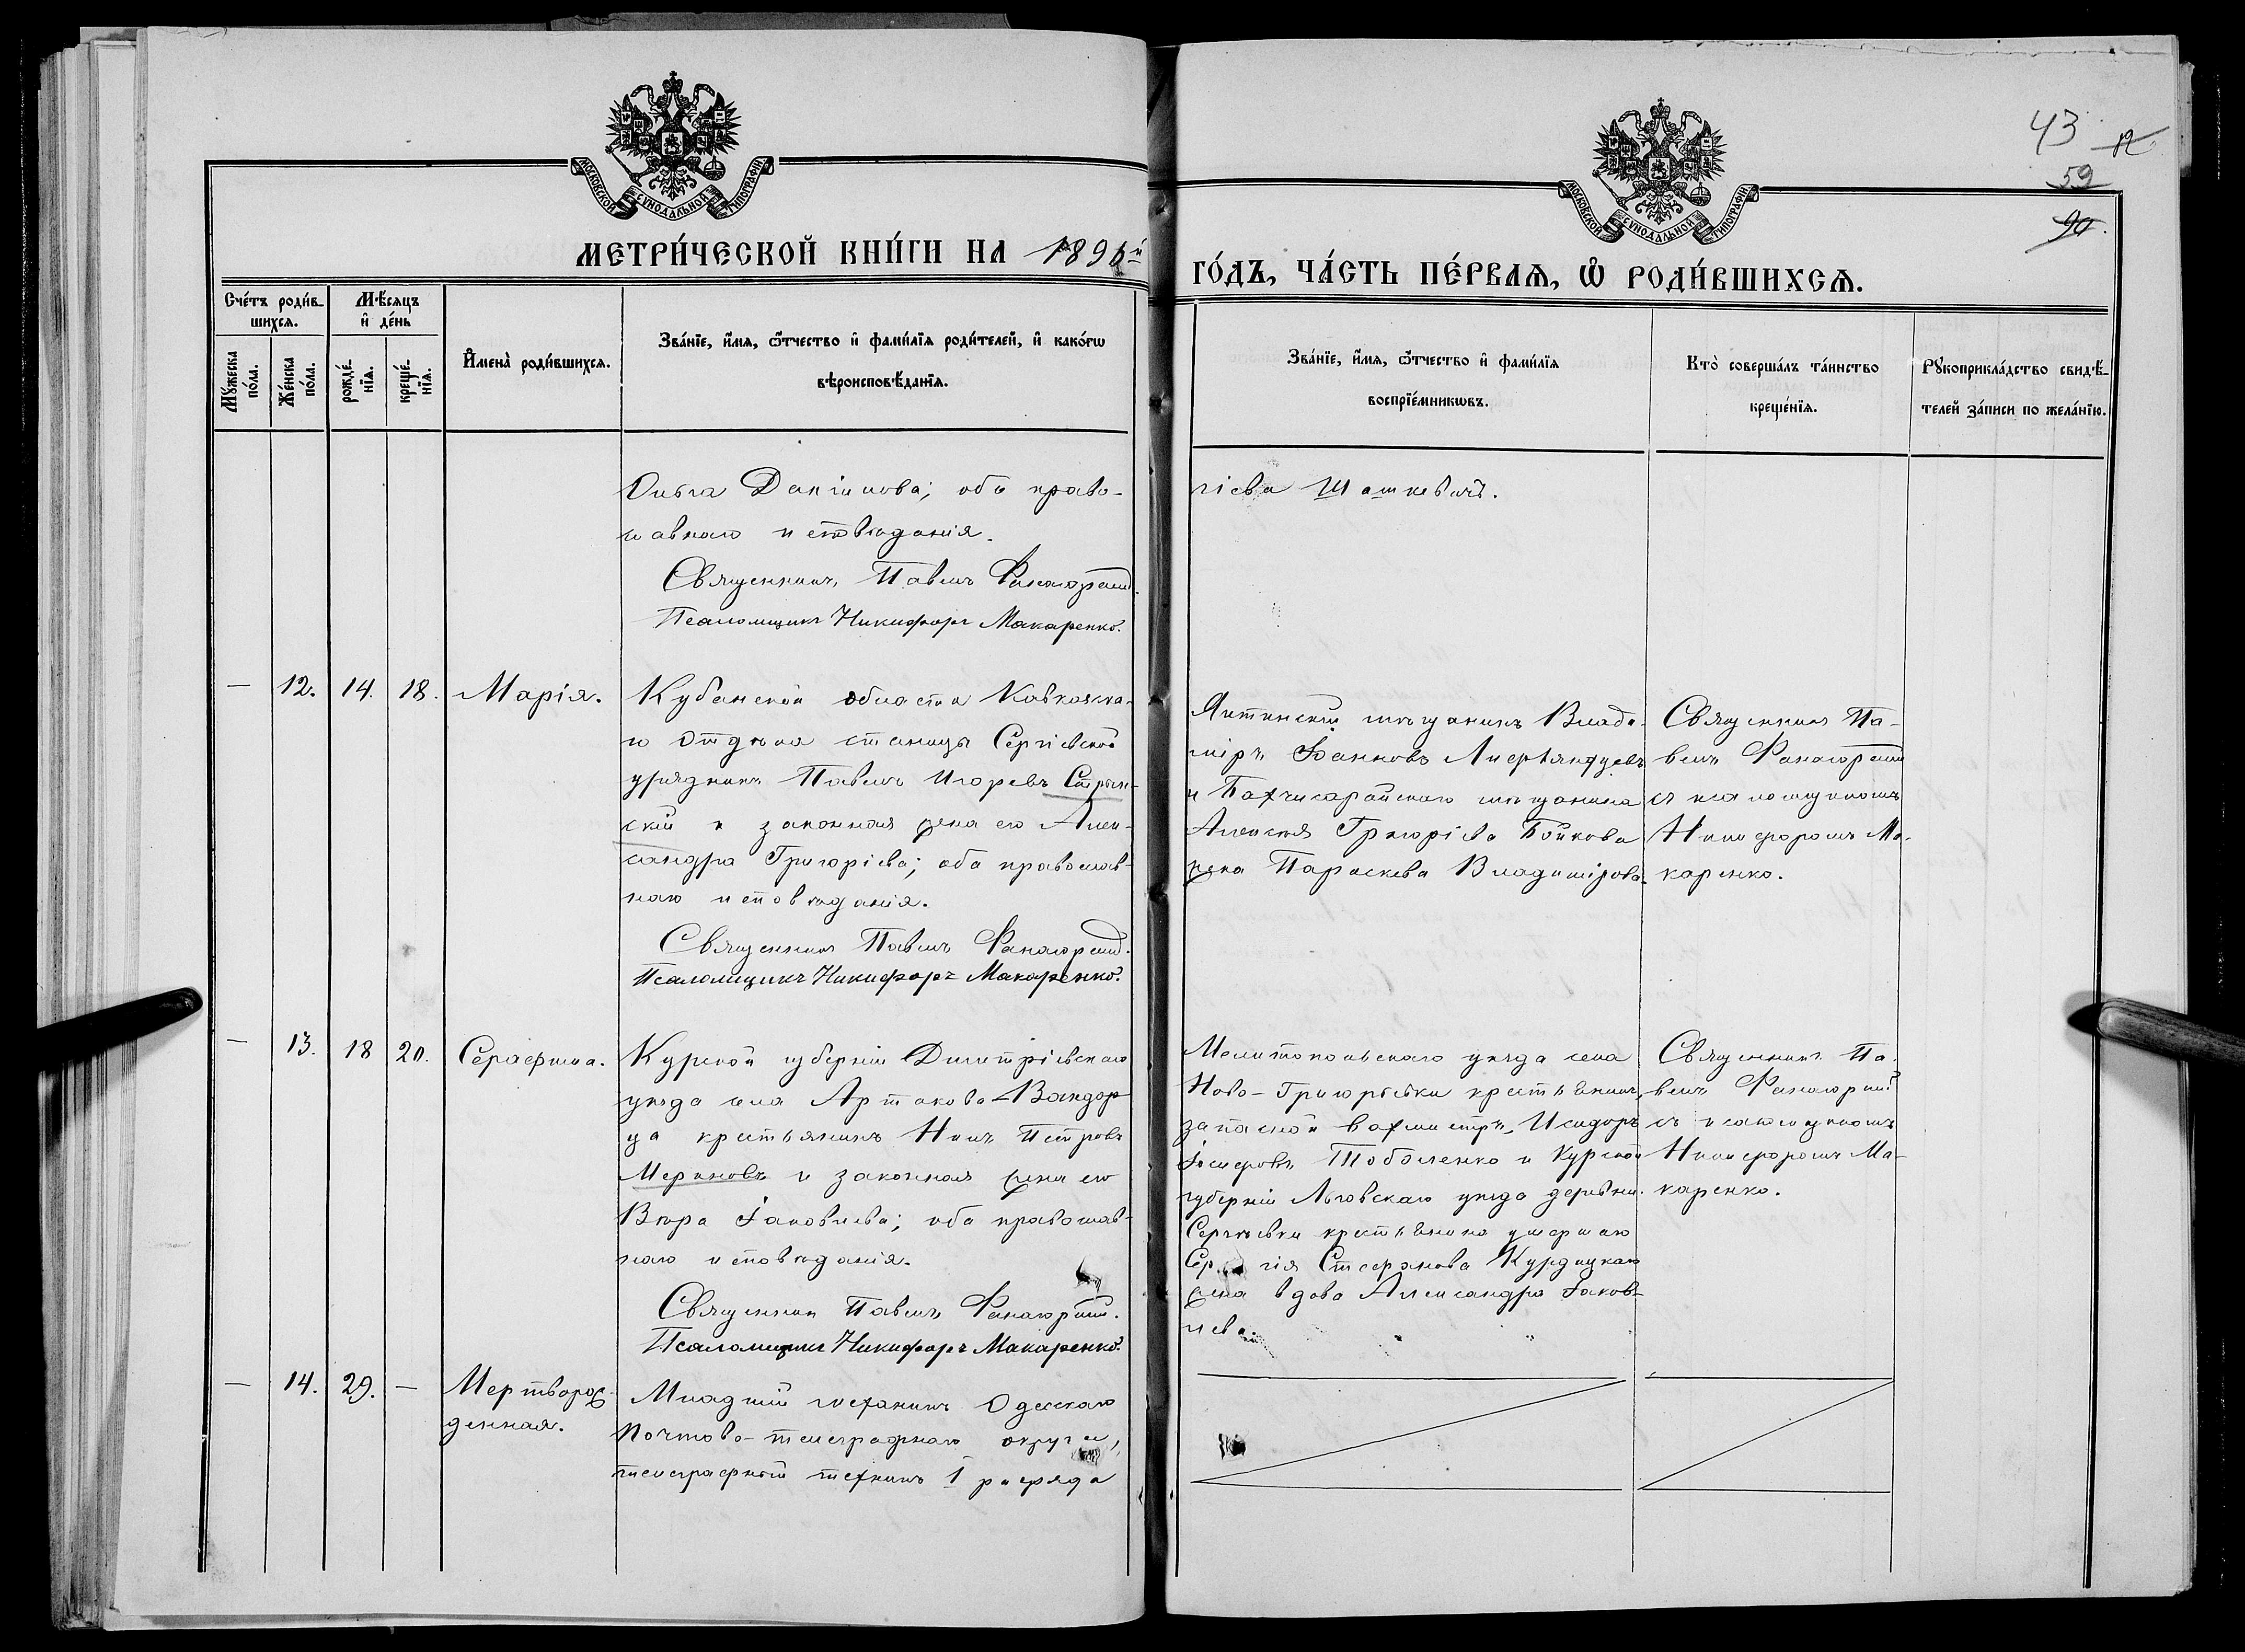 43
12
59
90.
МОСКОВСКОЙ СУНОДАЛЬНОЙ ТИПОГРАФІИ
МОСКОВСКОЙ СУНОДАЛЬНОЙ ТИПОГРАФІИ
МЕТРИ́ЧЕСКОЙ КНИ́ГИ НА 1896й
ГО́ДЪ, ЧА́СТЬ ПЕ́РВАѦ, Ѽ РОДИ́ВШИХСѦ.
Сче́тъ роди́в-
шихсѧ.
Мѣ́сѧцъ
и҆ де́нь
Мꙋ́жеска по́ла.
Же́нска по́ла.
рожде́-нїѧ.
креще́-нїѧ.
И҆мена̀ роди́вшихсѧ.
Зва́нїе, и҆́мѧ, ѻ҆́тчество и҆ фами́лїѧ роди́телей, и҆ како́гѡ
вѣроисповѣ́данїѧ.
Зва́нїе, и҆́мѧ, ѻ҆́тчество и҆ фами́лїѧ
воспрїе́мникѡвъ.
Кто̀ соверша́лъ та́инство
креще́нїѧ.
Рꙋкоприкла́дство свидѣ́-
телей за́писи по жела́нїю.
Ольга Даніилова; оба право-
славнаго исповѣданія.
Священникъ Павелъ
Псаломщикъ Никифоръ Макаренко.
гіева Шашкевичъ.
— 12. 14. 18. Марія.
Кубанской области Кавказска-
го Отдѣла станицы Сергіевской
урядникъ Павелъ Игоревъ
скій и законная жена его Алек-
сандра Григоріева; оба православ-
наго исповѣданія.
Священникъ Павелъ
Псаломщикъ Никифоръ Макаренко.
Ялтинскій мѣщанинъ Влади-
міръ Іоанновъ
и Бахчисарайскаго мѣщанина
Алексія Григоріева Бойкова
жена Параскева Владимірова.
Священникъ Па-
велъ
съ псаломщикомъ
Никифоромъ Ма-
каренко.
— 13. 18 20. Серафима.
Курской губерніи Дмитріевскаго
уѣзда села Артакова-
крестьянинъ Петровъ
Мериновъ и законная жена его
Вѣра Іаковлева; оба православ-
наго исповѣданія.
Священникъ Павелъ
Псаломщикъ Никифоръ Макаренко.
Мелитопольскаго уѣзда села
Ново-Григорьевки крестьянинъ,
запасной вахмистръ, Исидоръ
Іосифовъ Тоболенко и Курской
губерніи Льговскаго уѣзда деревни
Сергѣевки крестьянина умершаго
Сергія Стефанова Курдицкаго
жена вдова Александра Іаков-
лева.
Священникъ Па-
велъ
съ псаломщикомъ
Никифоромъ Ма-
каренко.
— 14. 29. — Мертворож-
денная.
Младшій механикъ Одесскаго
Почтово-телеграфнаго округа,
телеграфный техникъ I разряда